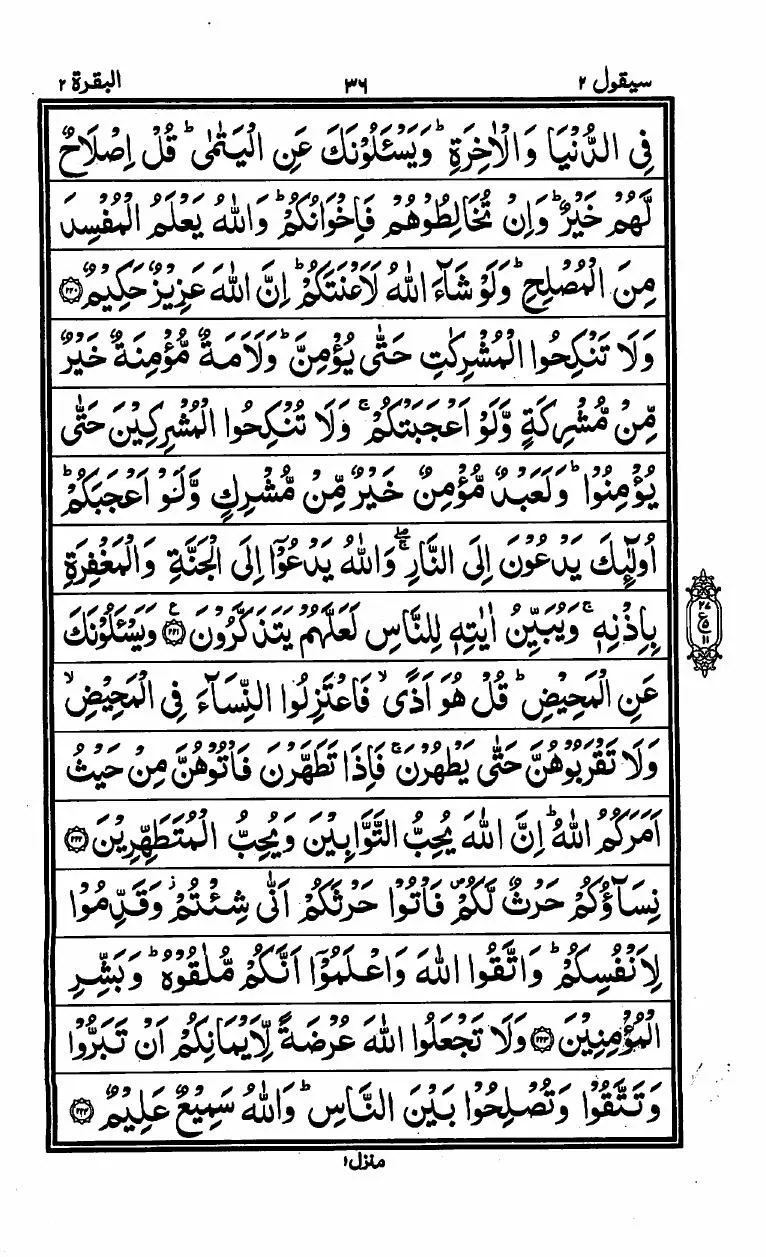 سيقول ٢
٣٦
البقرة ٢
فِي الدُّنْيَا وَالْاٰخِرَةِ ؕ وَيَسْـَٔلُوْنَكَ عَنِ الْيَتٰمٰى ؕ قُلْ اِصْلَاحٌ
لَّهُمْ خَيْرٌ ؕ وَاِنْ تُخَالِطُوْهُمْ فَاِخْوَانُكُمْ ؕ وَاللّٰهُ يَعْلَمُ الْمُفْسِدَ
مِنَ الْمُصْلِحِ ؕ وَلَوْ شَآءَ اللّٰهُ لَاَعْنَتَكُمْ ؕ اِنَّ اللّٰهَ عَزِيْزٌ حَكِيْمٌ ﴿٢٢٠﴾
وَلَا تَنْكِحُوا الْمُشْرِكٰتِ حَتّٰى يُؤْمِنَّ ؕ وَلَاَمَةٌ مُّؤْمِنَةٌ خَيْرٌ
مِّنْ مُّشْرِكَةٍ وَّلَوْ اَعْجَبَتْكُمْ ۚ وَلَا تُنْكِحُوا الْمُشْرِكِيْنَ حَتّٰى
يُؤْمِنُوْا ؕ وَلَعَبْدٌ مُّؤْمِنٌ خَيْرٌ مِّنْ مُّشْرِكٍ وَّلَوْ اَعْجَبَكُمْ ؕ
اُولٰٓئِكَ يَدْعُوْنَ اِلَى النَّارِ ۖۚ وَاللّٰهُ يَدْعُوْٓا اِلَى الْجَنَّةِ وَالْمَغْفِرَةِ
بِاِذْنِهٖ ۚ وَيُبَيِّنُ اٰيٰتِهٖ لِلنَّاسِ لَعَلَّهُمْ يَتَذَكَّرُوْنَ ﴿٢٢١﴾ ع وَيَسْـَٔلُوْنَكَ
عَنِ الْمَحِيْضِ ؕ قُلْ هُوَ اَذًى ۙ فَاعْتَزِلُوا النِّسَآءَ فِي الْمَحِيْضِ ۙ
وَلَا تَقْرَبُوْهُنَّ حَتّٰى يَطْهُرْنَ ۚ فَاِذَا تَطَهَّرْنَ فَاْتُوْهُنَّ مِنْ حَيْثُ
اَمَرَكُمُ اللّٰهُ ؕ اِنَّ اللّٰهَ يُحِبُّ التَّوَّابِيْنَ وَيُحِبُّ الْمُتَطَهِّرِيْنَ ﴿٢٢٢﴾
نِسَآؤُكُمْ حَرْثٌ لَّكُمْ ۪ فَاْتُوْا حَرْثَكُمْ اَنّٰى شِئْتُمْ ؗ وَقَدِّمُوْا
لِاَنْفُسِكُمْ ؕ وَاتَّقُوا اللّٰهَ وَاعْلَمُوْٓا اَنَّكُمْ مُّلٰقُوْهُ ؕ وَبَشِّرِ
الْمُؤْمِنِيْنَ ﴿٢٢٣﴾ وَلَا تَجْعَلُوا اللّٰهَ عُرْضَةً لِّاَيْمَانِكُمْ اَنْ تَبَرُّوْا
وَتَتَّقُوْا وَتُصْلِحُوْا بَيْنَ النَّاسِ ؕ وَاللّٰهُ سَمِيْعٌ عَلِيْمٌ ﴿٢٢٤﴾
٢٧
ع ٥
١١
منزل ١